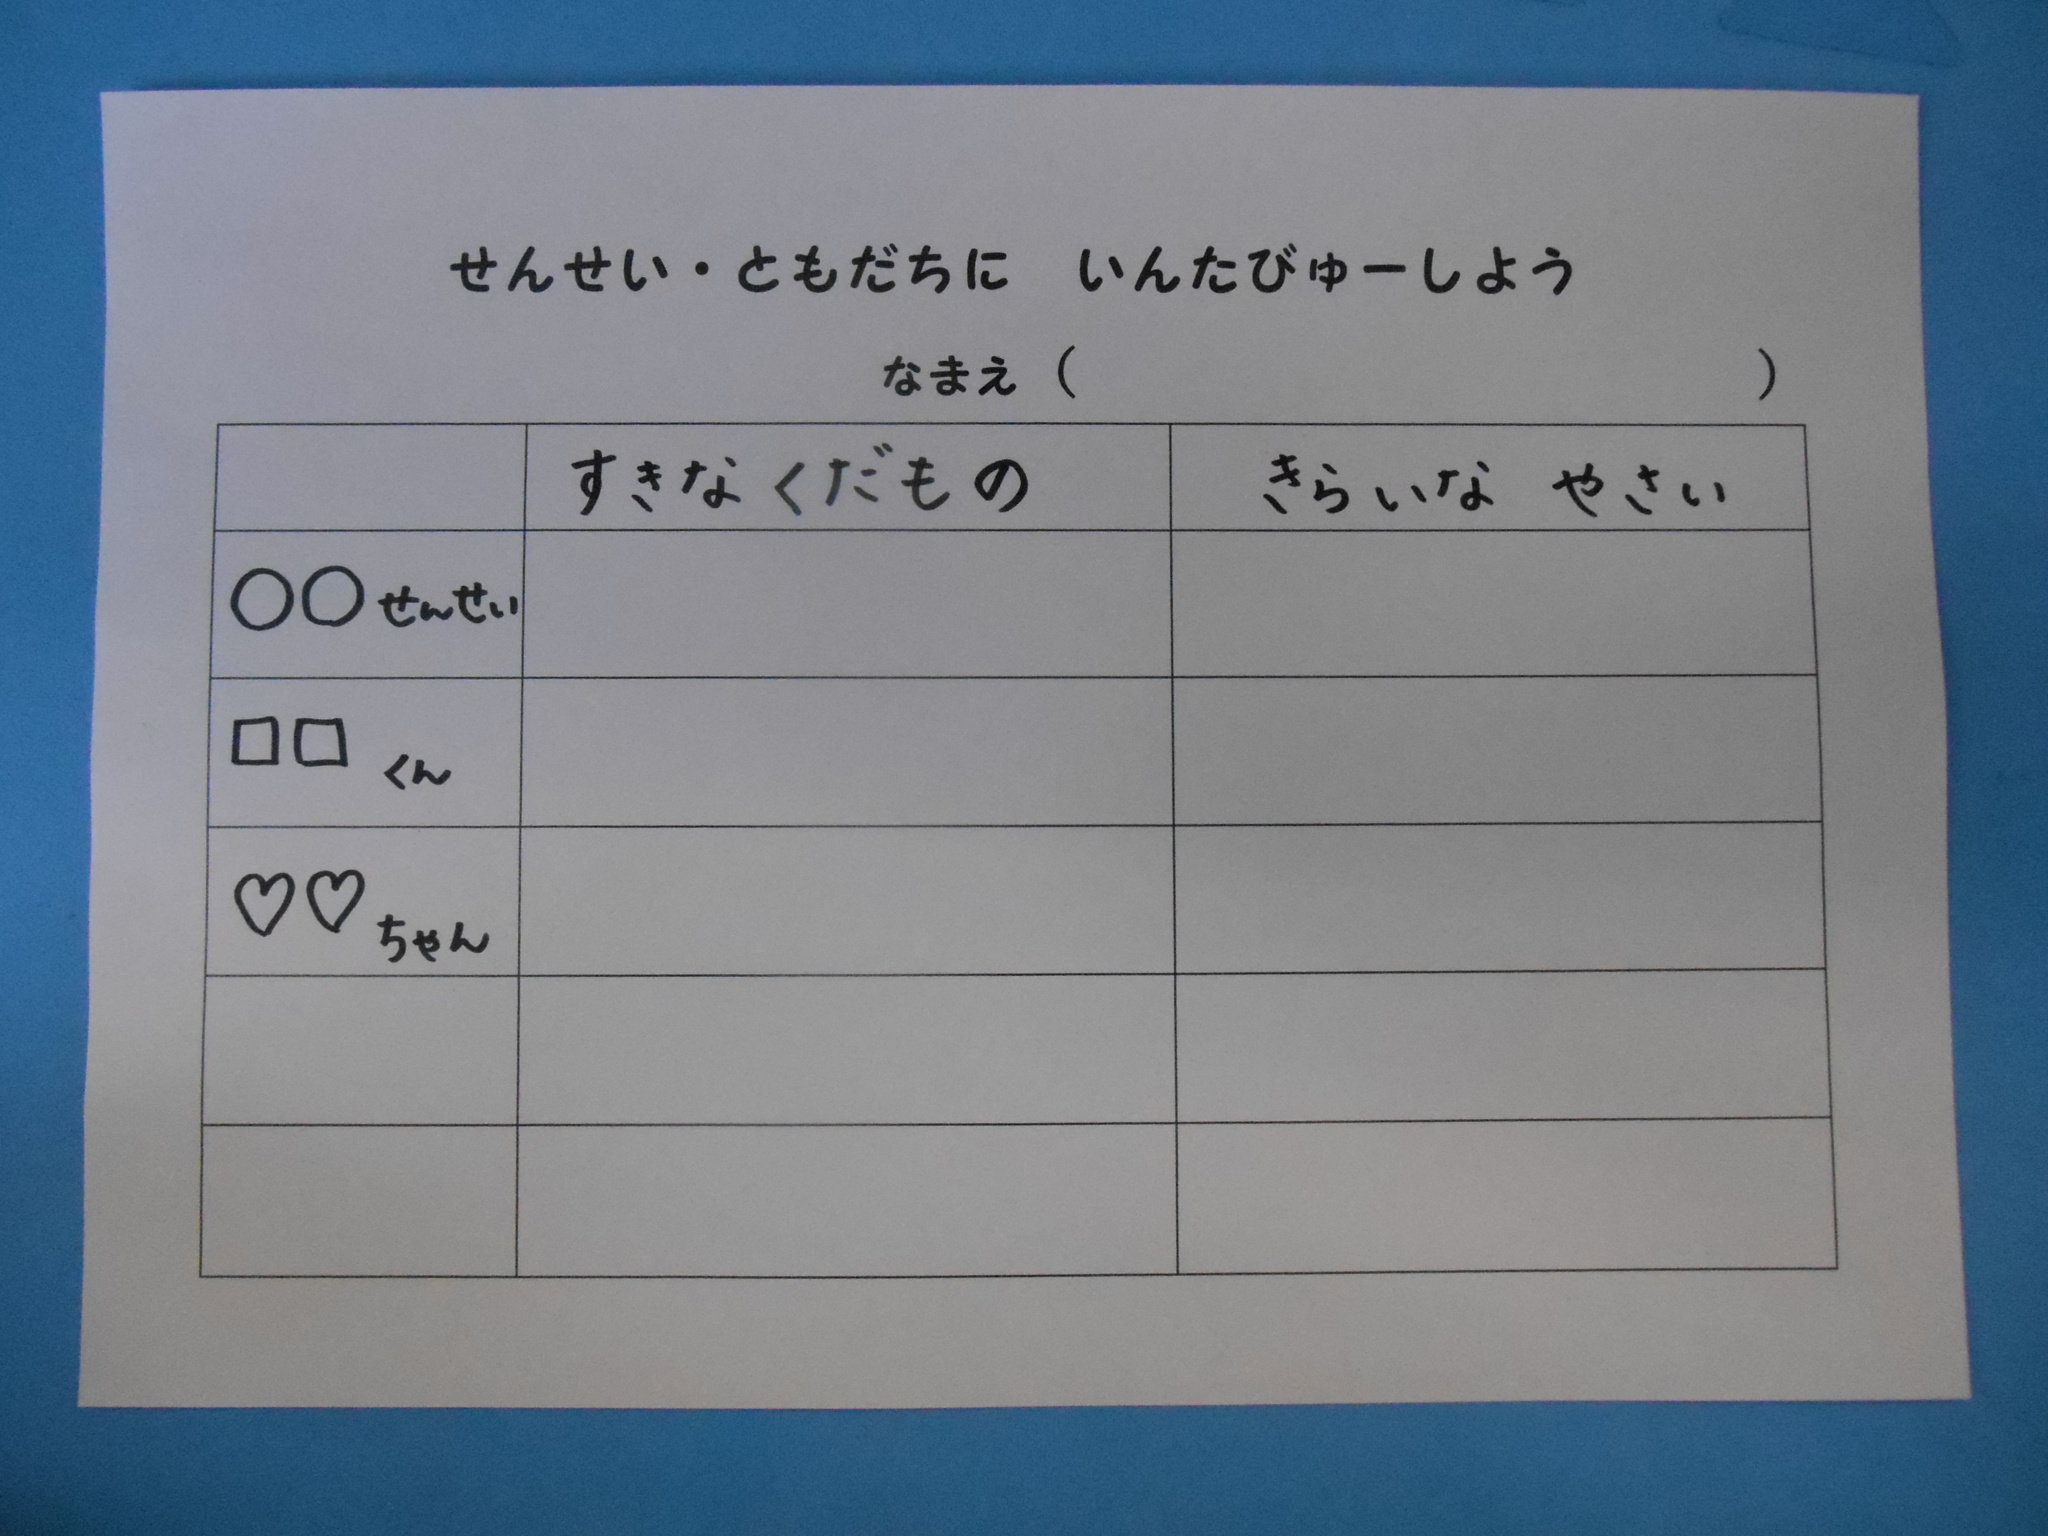 せんせい・ともだちに　いんたびゅーしよう
なまえ（　　　　　　　　　　　　）
すきなくだもの　きらいな　やさい
○○せんせい
□□くん
♡♡ちゃん